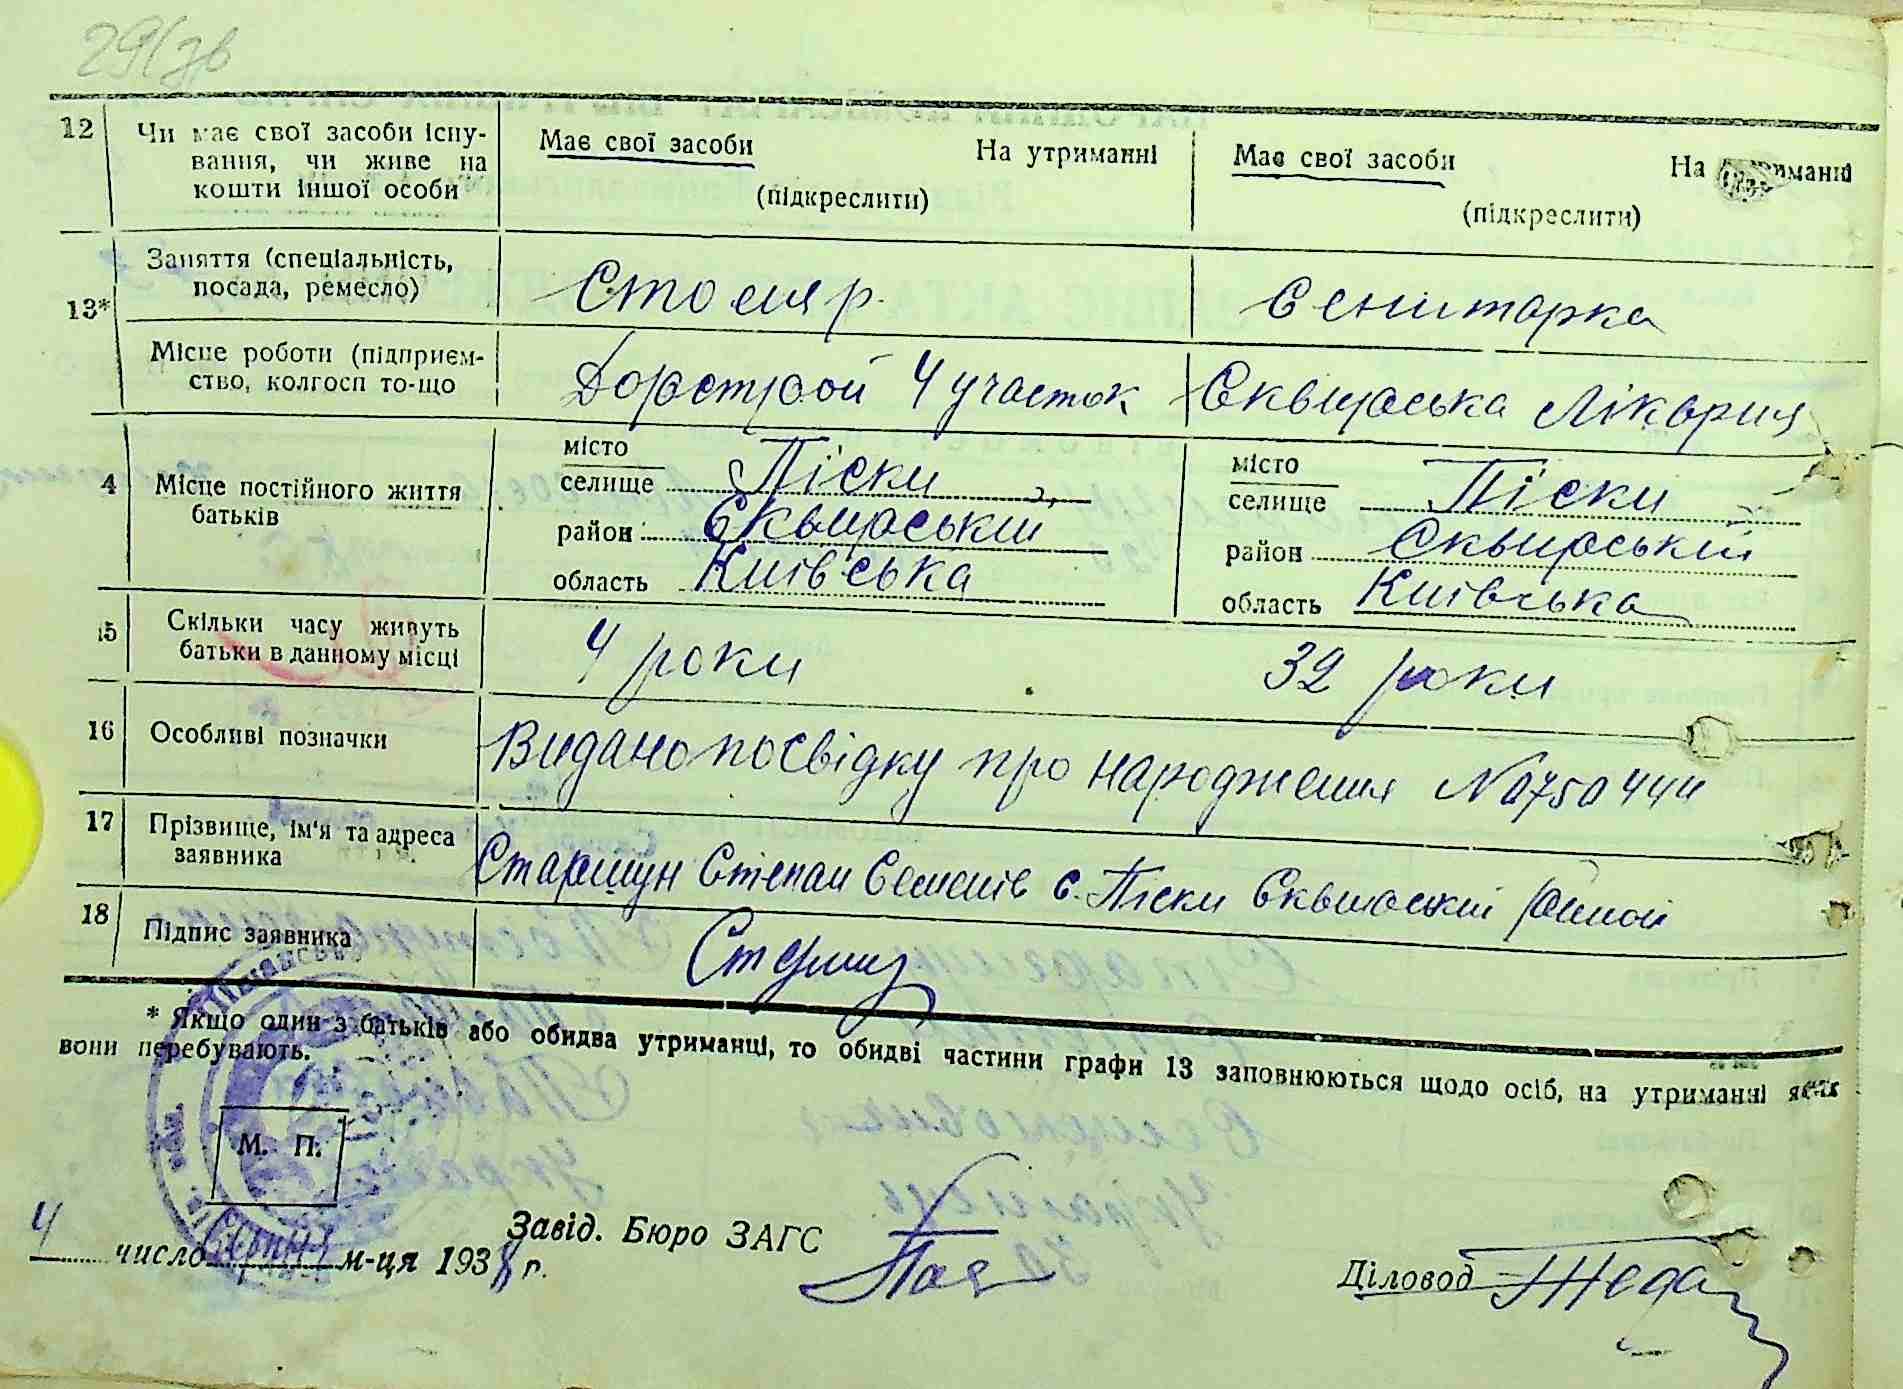 29 зв
12 Чи має свої засоби існу-
вання, чи живе на
кошти іншої особи
Має свої засоби На утриманні
(підкреслити)
Має свої засоби На утриманні
(підкреслити)
13* Заняття (спеціальність,
посада, ремесло)
Столяр
Сенитарка
Місце роботи (підприєм-
ство, колгосп то-що
Дорстрой 4 участок
Сквирська Лікарня
4 Місце постійного життя
батьків
місто
селище Піски
район Сквирський
область Київська
місто
селище Піски
район Сквирський
область Київська
15 Скільки часу живуть
батьки в данному місці
4 роки
32 роки
16 Особливі позначки
Видано посвідку про народження №
17 Прізвище, ім'я та адреса
заявника
Старшун Степан Семенів с. Піски Сквирський район
18 Підпис заявника
* Якщо один з батьків або обидва утриманці, то обидві частини графи 13 заповнюються щодо осіб, на утриманні яких
вони перебувають.
М. П.
4 число Серпня м-ця 1938 г.
Завід. Бюро ЗАГС
Діловод